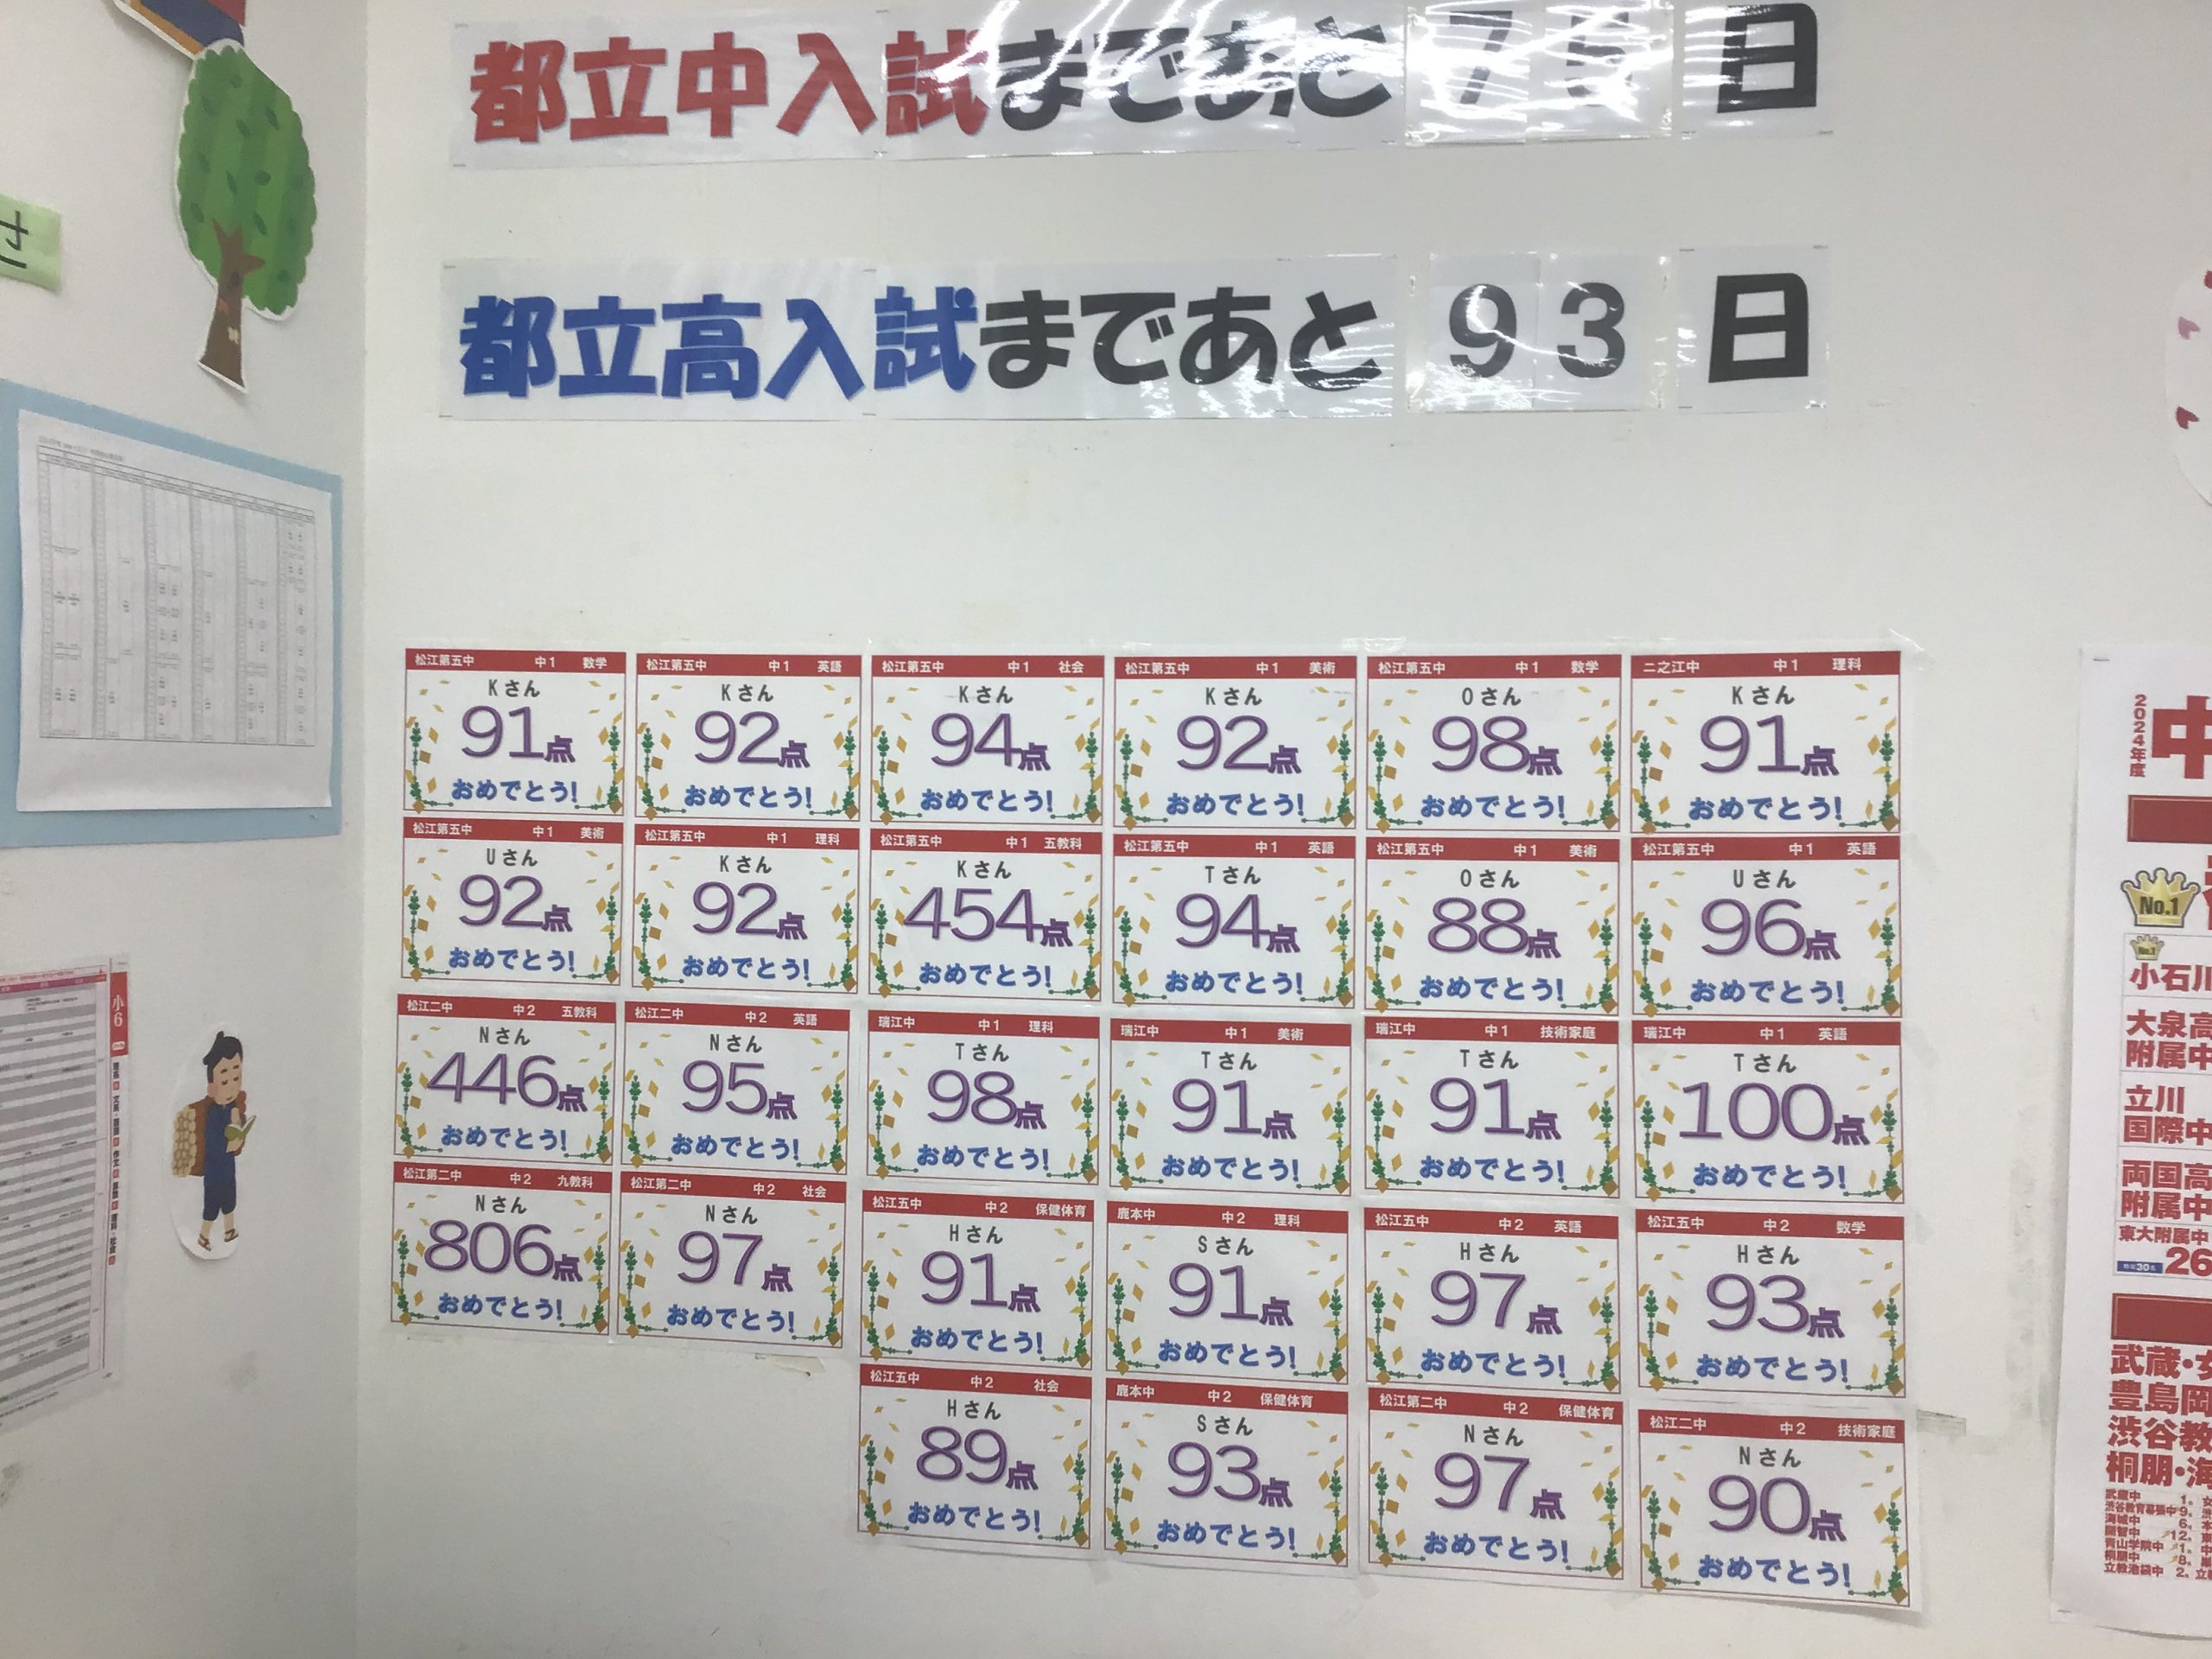 都立中入試まであと75日
都立高入試まであと93日
さ
松江第五中 中1 数学
Kさん
91点
おめでとう!
松江第五中 中1 英語
Kさん
92点
おめでとう!
松江第五中 中1 社会
Kさん
94点
おめでとう!
松江第五中 中1 美術
Kさん
92点
おめでとう!
松江第五中 中1 数学
Oさん
98点
おめでとう!
二之江中 中1 理科
Kさん
91点
おめでとう!
松江第五中 中1 美術
Uさん
92点
おめでとう!
松江第五中 中1 理科
Kさん
92点
おめでとう!
松江第五中 中1 五教科
Kさん
454点
おめでとう!
松江第五中 中1 英語
Tさん
94点
おめでとう!
松江第五中 中1 美術
Oさん
88点
おめでとう!
松江第五中 中1 英語
Uさん
96点
おめでとう!
松江二中 中2 五教科
Nさん
446点
おめでとう!
松江二中 中2 英語
Nさん
95点
おめでとう!
瑞江中 中1 理科
Tさん
98点
おめでとう!
瑞江中 中1 美術
Tさん
91点
おめでとう!
瑞江中 中1 技術家庭
Tさん
91点
おめでとう!
瑞江中 中1 英語
Tさん
100点
おめでとう!
松江第二中 中2 九教科
Nさん
806点
おめでとう!
松江第二中 中2 社会
Nさん
97点
おめでとう!
松江五中 中2 保健体育
Hさん
91点
おめでとう!
鹿本中 中2 理科
Sさん
91点
おめでとう!
松江五中 中2 英語
Hさん
97点
おめでとう!
松江五中 中2 数学
Hさん
93点
おめでとう!
松江五中 中2 社会
Hさん
89点
おめでとう!
鹿本中 中2 保健体育
Sさん
93点
おめでとう!
松江第二中 中2 保健体育
Nさん
97点
おめでとう!
松江二中 中2 技術家庭
Nさん
90点
おめでとう!
小6
2024年度
中
No.1
小石川
大泉高
附属中
立川
国際中
両国高
附属中
東大附属中
26
武蔵・女
豊島岡
渋谷教
桐朋・海
武蔵中 1
渋谷教育幕張中 9
海城中 6
開智中 12
青山学院中 1
桐朋中 8
立教池袋中 2